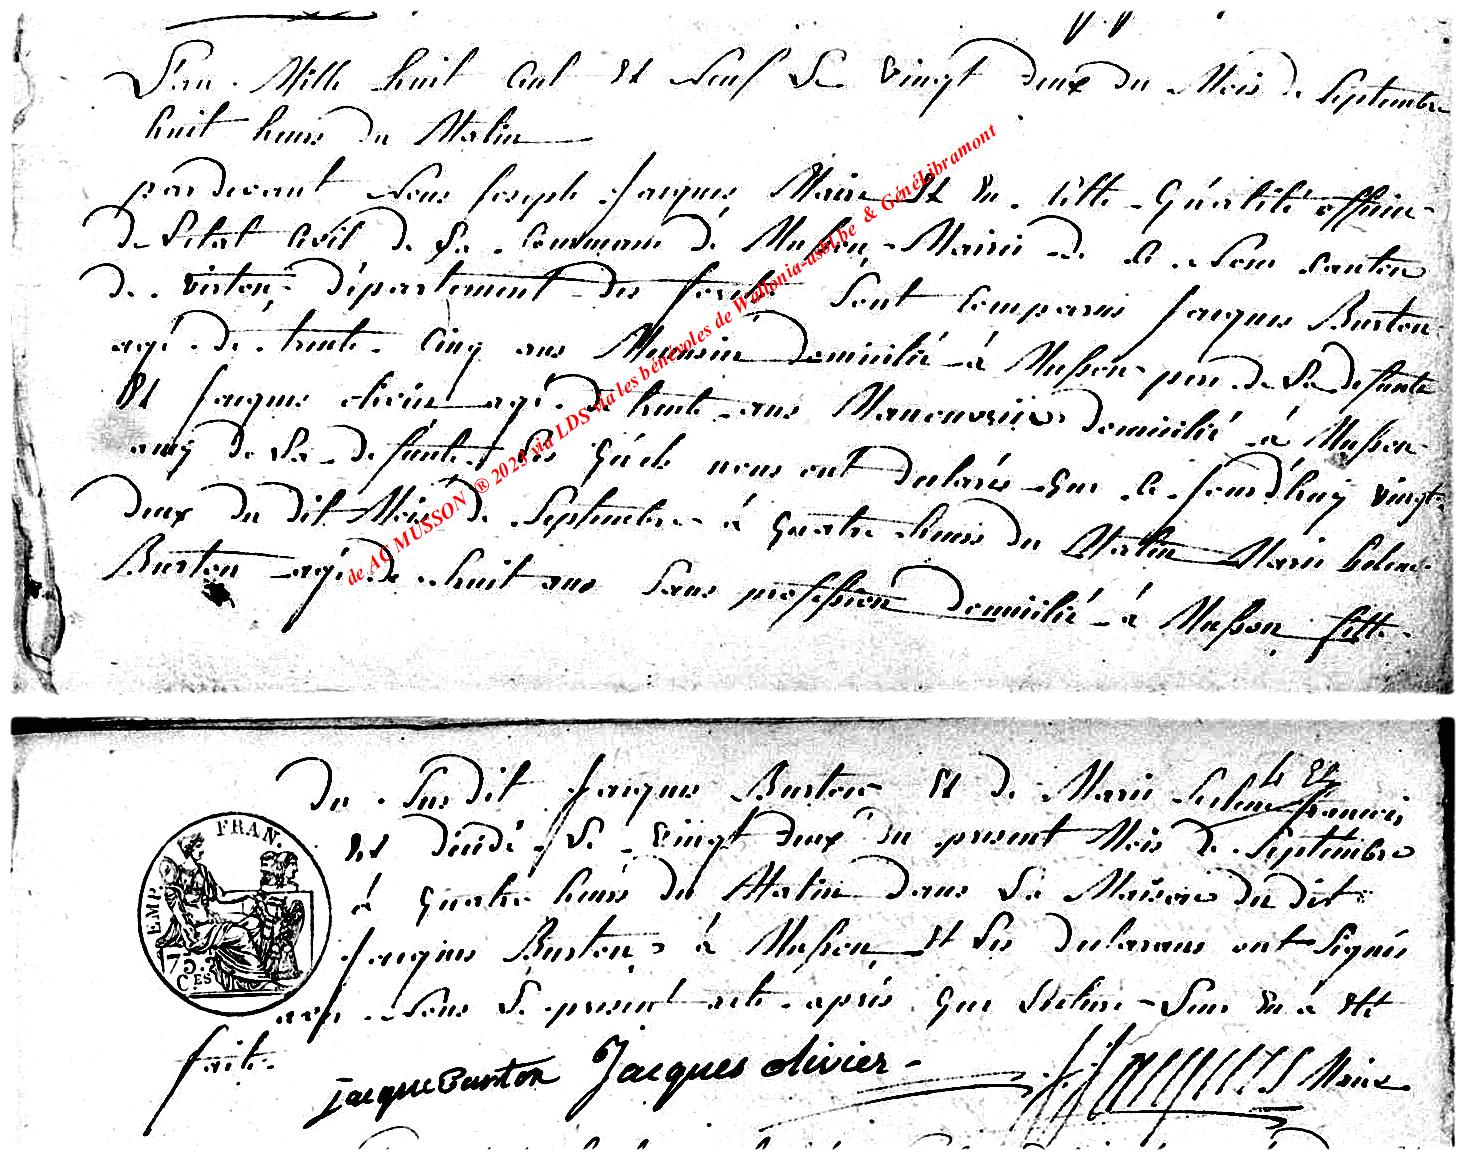 L'an Mille huit Cent Et Neuf Le vingt deux du Mois de Septembre
huit heures du Matin
pardevant Nous Joseph Jacques Maire Et En Cette Qualité officier
de L'etat Civil de La Commune de Musson Mairie de Ce Nom Canton
de virton, département des forêts Sont Comparus Jacques Burton
agé de trente Cinq ans domicilié à Musson pere de La defunte
Et Jacques olivier agé de trente ans Manouvrier domicilié à Musson
amy de La defunte Les Quels nous ont declarés que le Jourd'huy vingt
deux du dit Mois de Septembre à quatre heures du Matin Marie helene
Burton agé de huit ans Sans profession domicilié à Musson fille
du Susdit Jacques Burton Et de Marie francois
Et décédé Le vingt deux du present Mois de Septembre
à quatre heures du Matin dans La Maison du dit
Jacques Burton à Musson Et Les declarans ont Signés
avec Nous Le present acte après que Lecture Leur En a Eté
faite.
jacque Burton Jacques olivier J. J. Jacques Maire
EMP. FRAN.
75 CES
de AC MUSSON ® 2023 via LDS via les bénévoles de Wallonia-asbl.be & GénéLibramont